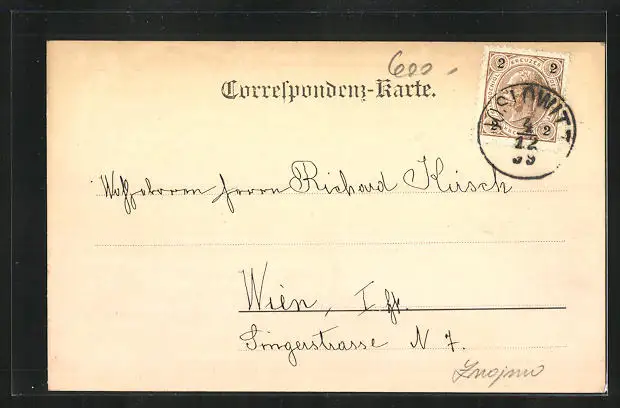 600.
Correspondenz-Karte.
2 KREUZER 2
2 2
JOSLOWITZ
4
12
99
Wohlgeboren Herrn Richard Kirsch
Wien, I
Singerstrasse N 7.
Znojmo